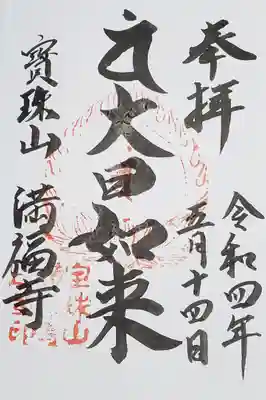 奉拝
令和四年
五月十四日
大日如来
寶珠山
満福寺
宝珠山